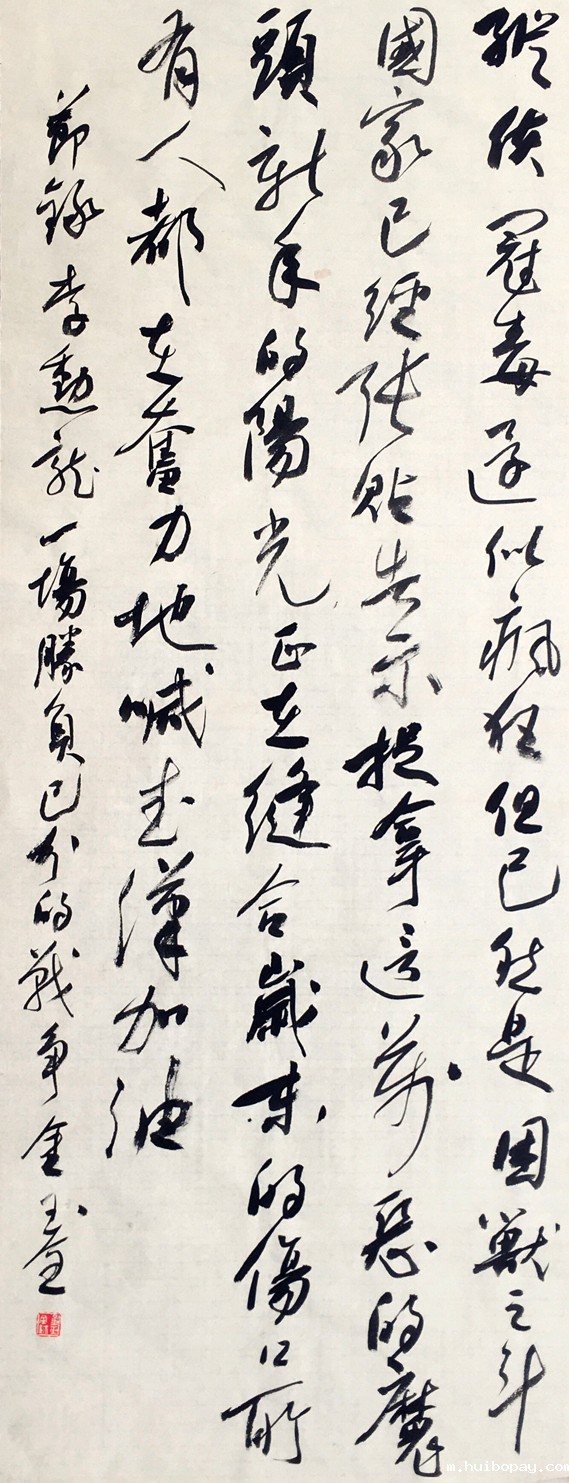 縱使冠毒還似瘋狂但已然是困獸之斗
國家已經張貼告示捉拿這萬惡的魔
頭新年的陽光正在縫合歲末的傷口所
有人都在奮力地喊武漢加油
節錄李勳龍一場勝負已分的戰爭金玉
m.huibopay.com